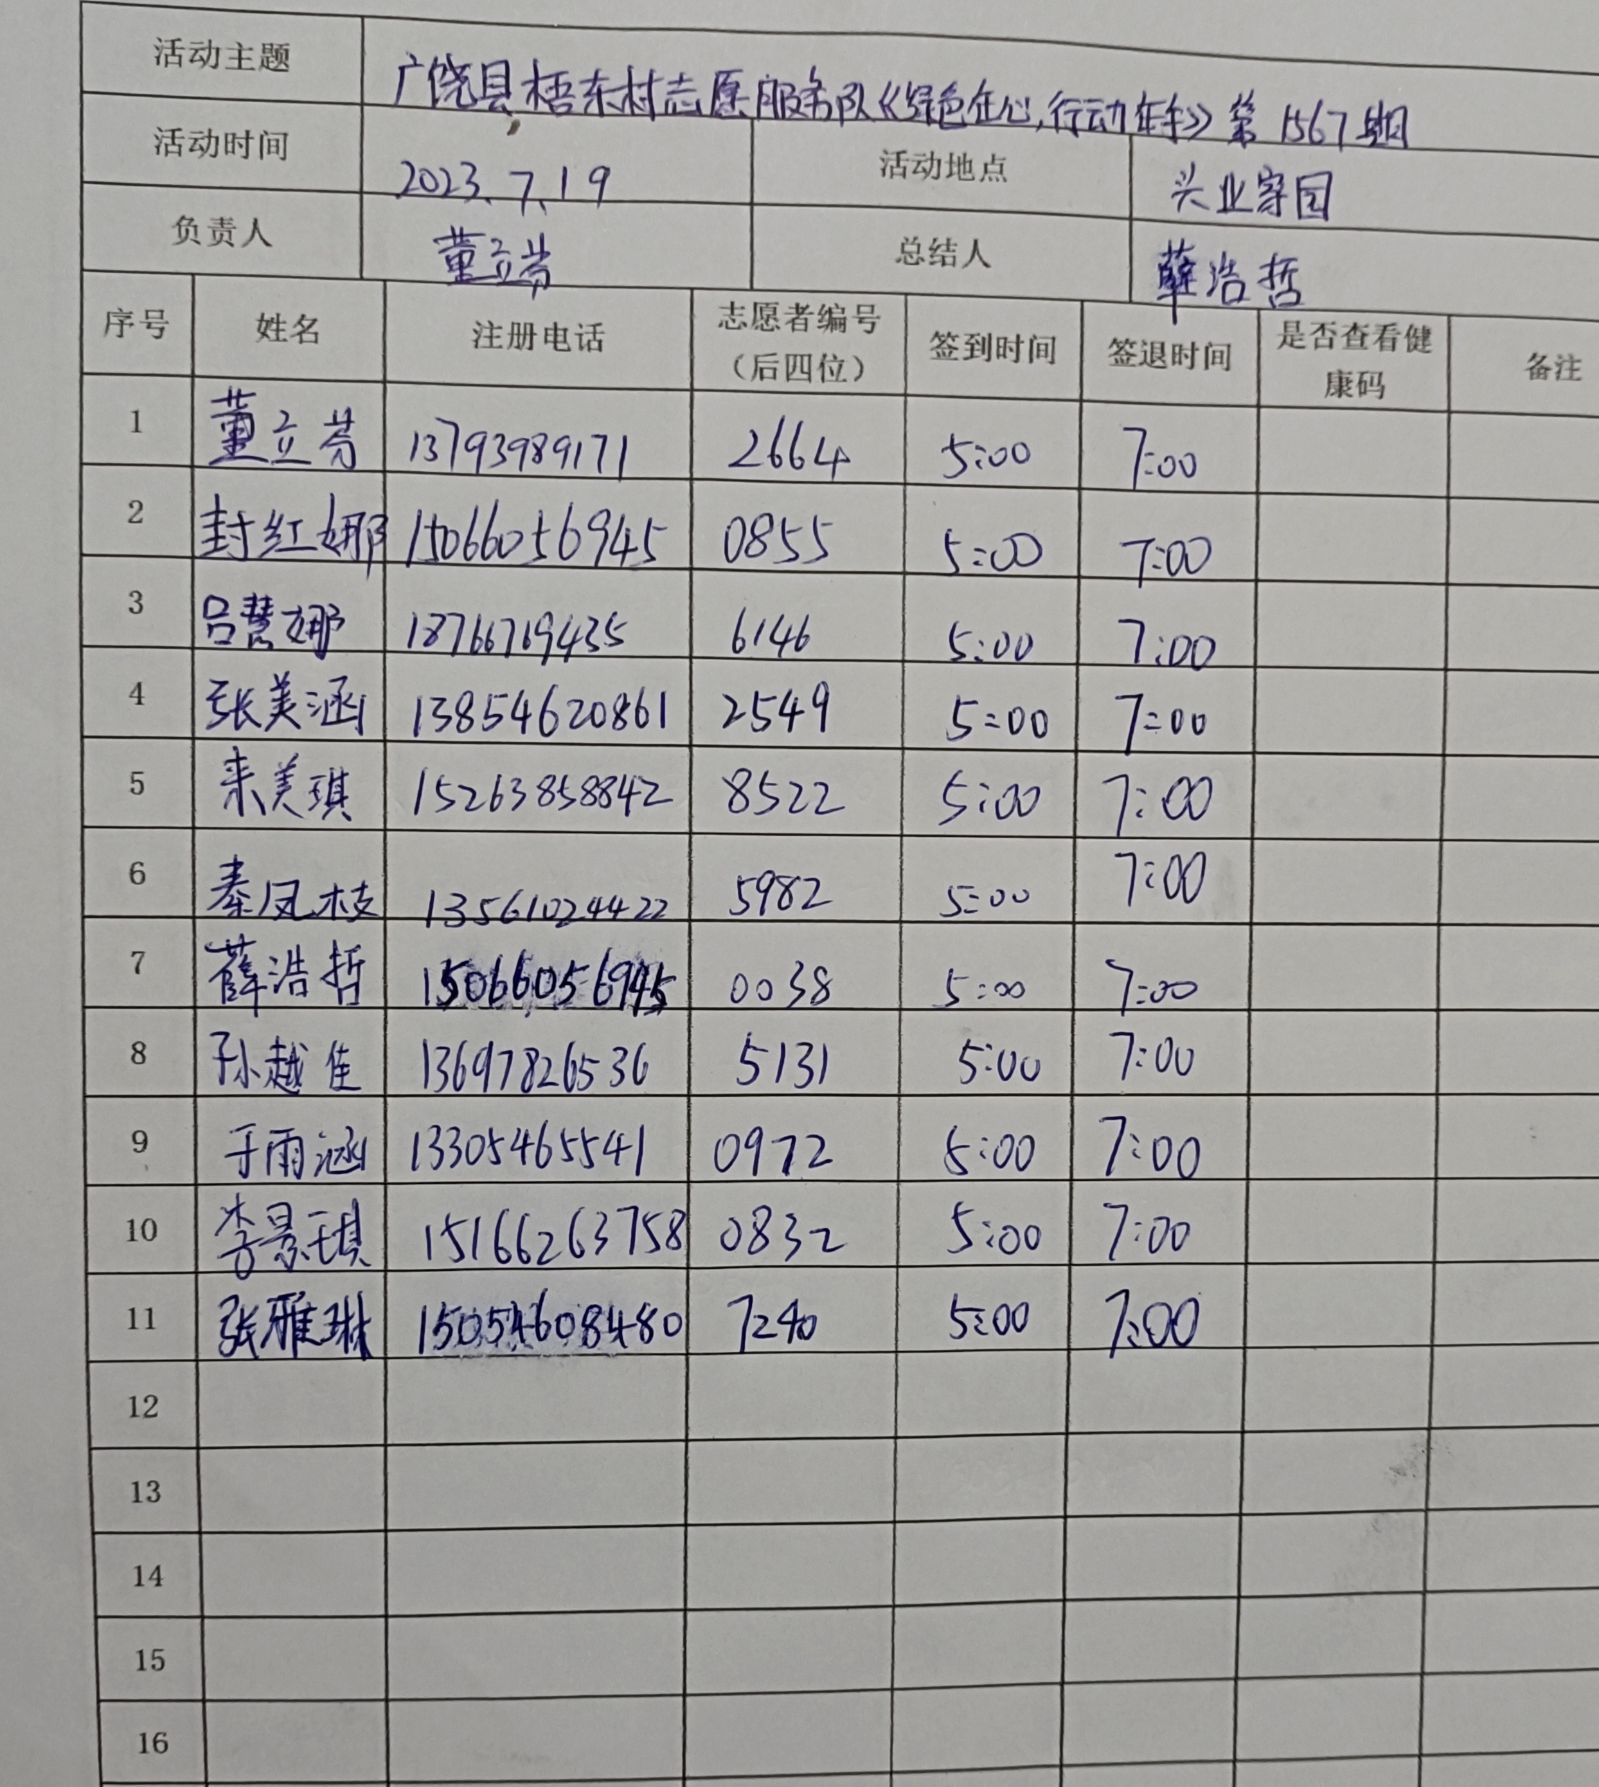 活动主题 广饶县梧东村志愿服务队《绿色在心,行动在手》第1567期
活动时间 2023.7.19 活动地点 兴业家园
负责人 董立芬 总结人 薛浩哲
序号 姓名 注册电话 志愿者编号（后四位） 签到时间 签退时间 是否查看健康码 备注
1 董立芬 13793989171 2664 5:00 7:00
2 封红娜 15066056945 0855 5:00 7:00
3 吕慧娜 18766769435 6146 5:00 7:00
4 张美涵 13854620861 2549 5:00 7:00
5 来美琪 15263858842 8522 5:00 7:00
6 秦凤枝 13561024422 5982 5:00 7:00
7 薛浩哲 15066056945 0038 5:00 7:00
8 孙越佳 13697826536 5131 5:00 7:00
9 于雨涵 13305465541 0972 5:00 7:00
10 李景琪 15166263758 0832 5:00 7:00
11 张雅琳 15054608480 7240 5:00 7:00
12
13
14
15
16